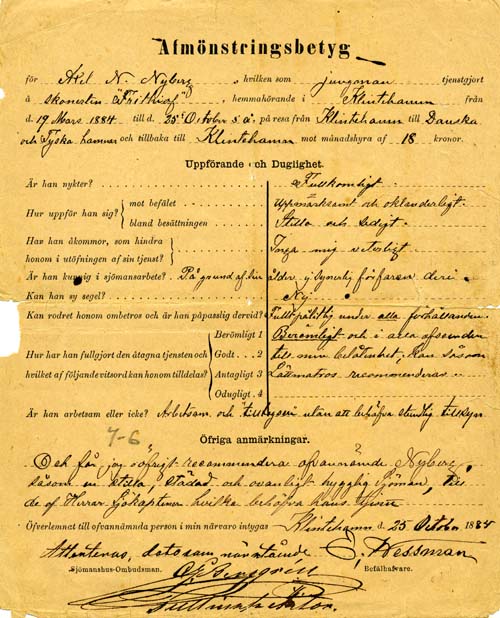 Afmönstringsbetyg
för Axel N. Nyberg, hvilken som jungman tjenstgjort
å skonerten "Frithiof", hemmahörande i Klintehamn från
d. 19 Mars 1884 till d. 25 Octobr s.å. på resa från Klintehamn till Danska
och Tyska hamnar och tillbaka till Klintehamn mot månadshyra af 18 kronor.
Uppförande och Duglighet.
Är han nykter? Fullkomligt
Hur uppför han sig? mot befälet Uppmärksamt och oklanderligt.
bland besättningen Stilla och sedigt.
Har han åkommor, som hindra
honom i utöfningen af sin tjenst? Inga mig veterligt
Är han kunnig i sjömansarbete? På grund af sin ålder, synnerlig förfaren deri
Kan han sy segel? Nej
Kan rodret honom ombetros och är han påpasslig dervid? Fullt pålitlig under alla förhållanden
Hur har han fullgjort den åtagna tjensten och
hvilket af följande vitsord kan honom tilldelas?
Berömligt 1 Berömligt och i alla afseenden
Godt . . . 2 till min belåtenhet, kan såsom
Antagligt 3 Lättmatros recommenderas
Odugligt . 4
Är han arbetsam eller icke? Arbetsam och utan att behöfva ständig tillsyn
7-6
Öfriga anmärkningar.
Och får jag öfrigt recommendera ofvannämnde Nyberg,
såsom en stilla, städad och ovanligt hygglig sjöman, till
de af Herrar Sjökaptener hvilka behöfva hans tjenst
Öfverlemnat till ofvannämnda person i min närvaro intygas Klintehamn d. 25 October 1884
Attesteras, detosam närvarande
Hessman
Sjömanshus-Ombudsman.
Befälhafvare.